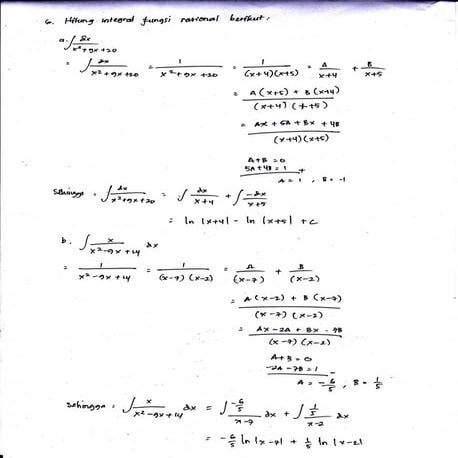 6. Hitung integral fungsi rational berikut:
a. ∫ dx / x²+9x+20
= ∫ dx / x²+9x+20 = 1 / x²+9x+20 = 1 / (x+4)(x+5) = A / x+4 + B / x+5
= A(x+5) + B(x+4) / (x+4)(x+5)
= Ax + 5A + Bx + 4B / (x+4)(x+5)
A+B = 0
5A+4B = 1 +
A = 1, B = -1
Sehingga = ∫ dx / x²+9x+20 = ∫ dx / x+4 + ∫ -dx / x+5
= ln |x+4| - ln |x+5| + c
b. ∫ x / x²-9x+14 dx
= 1 / x²-9x+14 = 1 / (x-7)(x-2) = A / (x-7) + B / (x-2)
= A(x-2) + B(x-7) / (x-7)(x-2)
= Ax-2A + Bx-7B / (x-7)(x-2)
A+B = 0
-2A-7B = 1 -
A = -6/5, B = 1/5
Sehingga = ∫ x / x²-9x+14 dx = ∫ -6/5 / x-7 dx + ∫ 1/5 / x-2 dx
= -6/5 ln |x-7| + 1/5 ln |x-2|